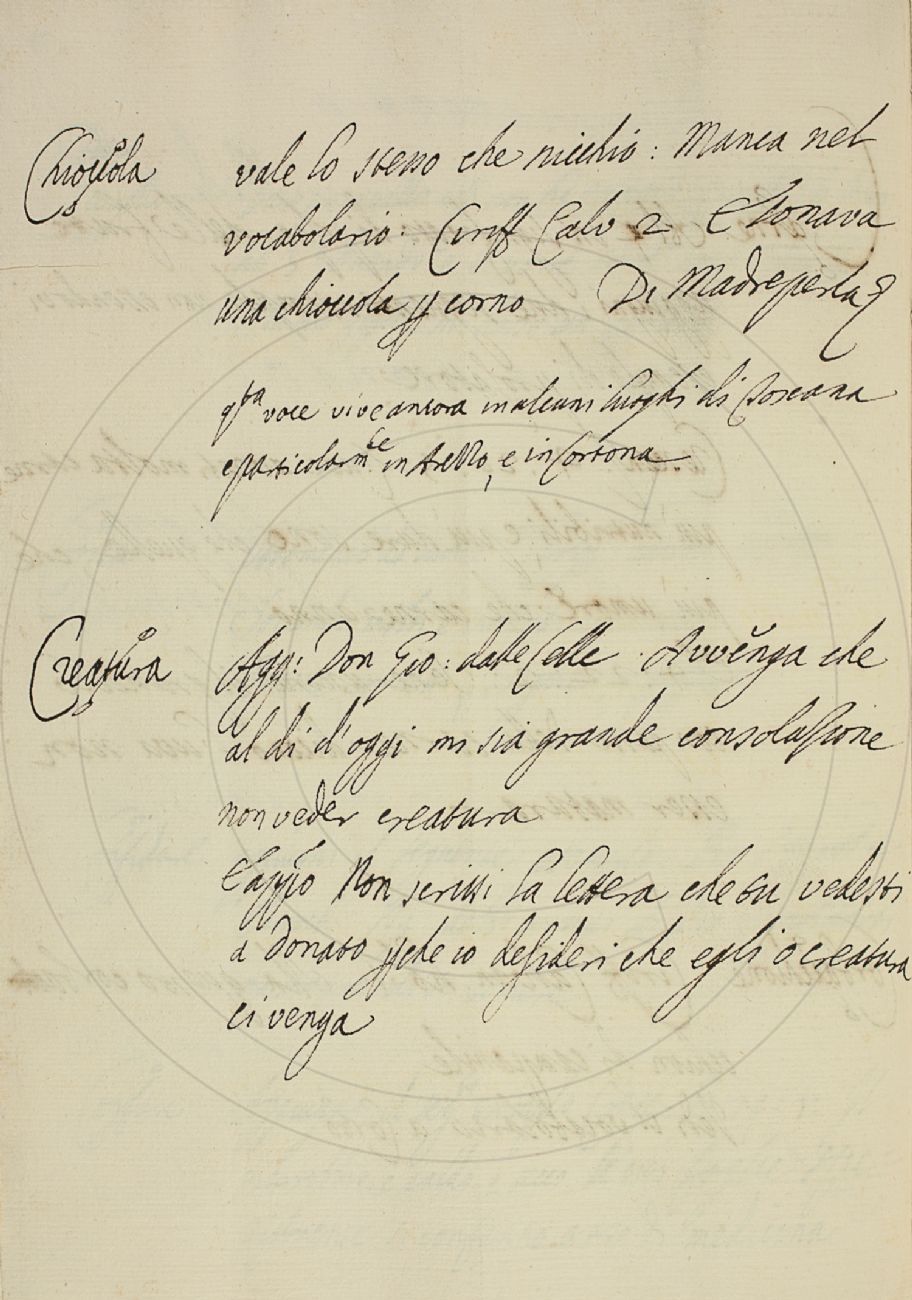 Chioccola vale lo stesso che nicchio: Manca nel
vocabolario. Ciriff Calv 2 E sonava
una chioccola p corno Di Madreperla
qsta voce vive ancora in alcuni luoghi di Toscana
e particolarmte in Arezzo, e in Cortona
Creatura Agg: Don Gio: dalle Celle. Avvĕnga che
al di d'oggi mi sia grande consolazione
non veder creatura
E appo Non scrissi la lettera che tu vedesti
a Donato pche io desideri che egli o creatura
ci venga